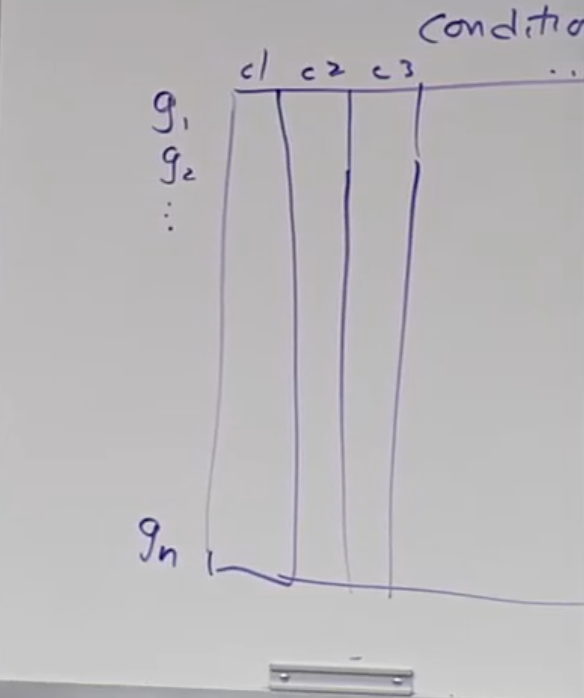 conditio
c1 c2 c3 ..
g1
g2
⋮
gn